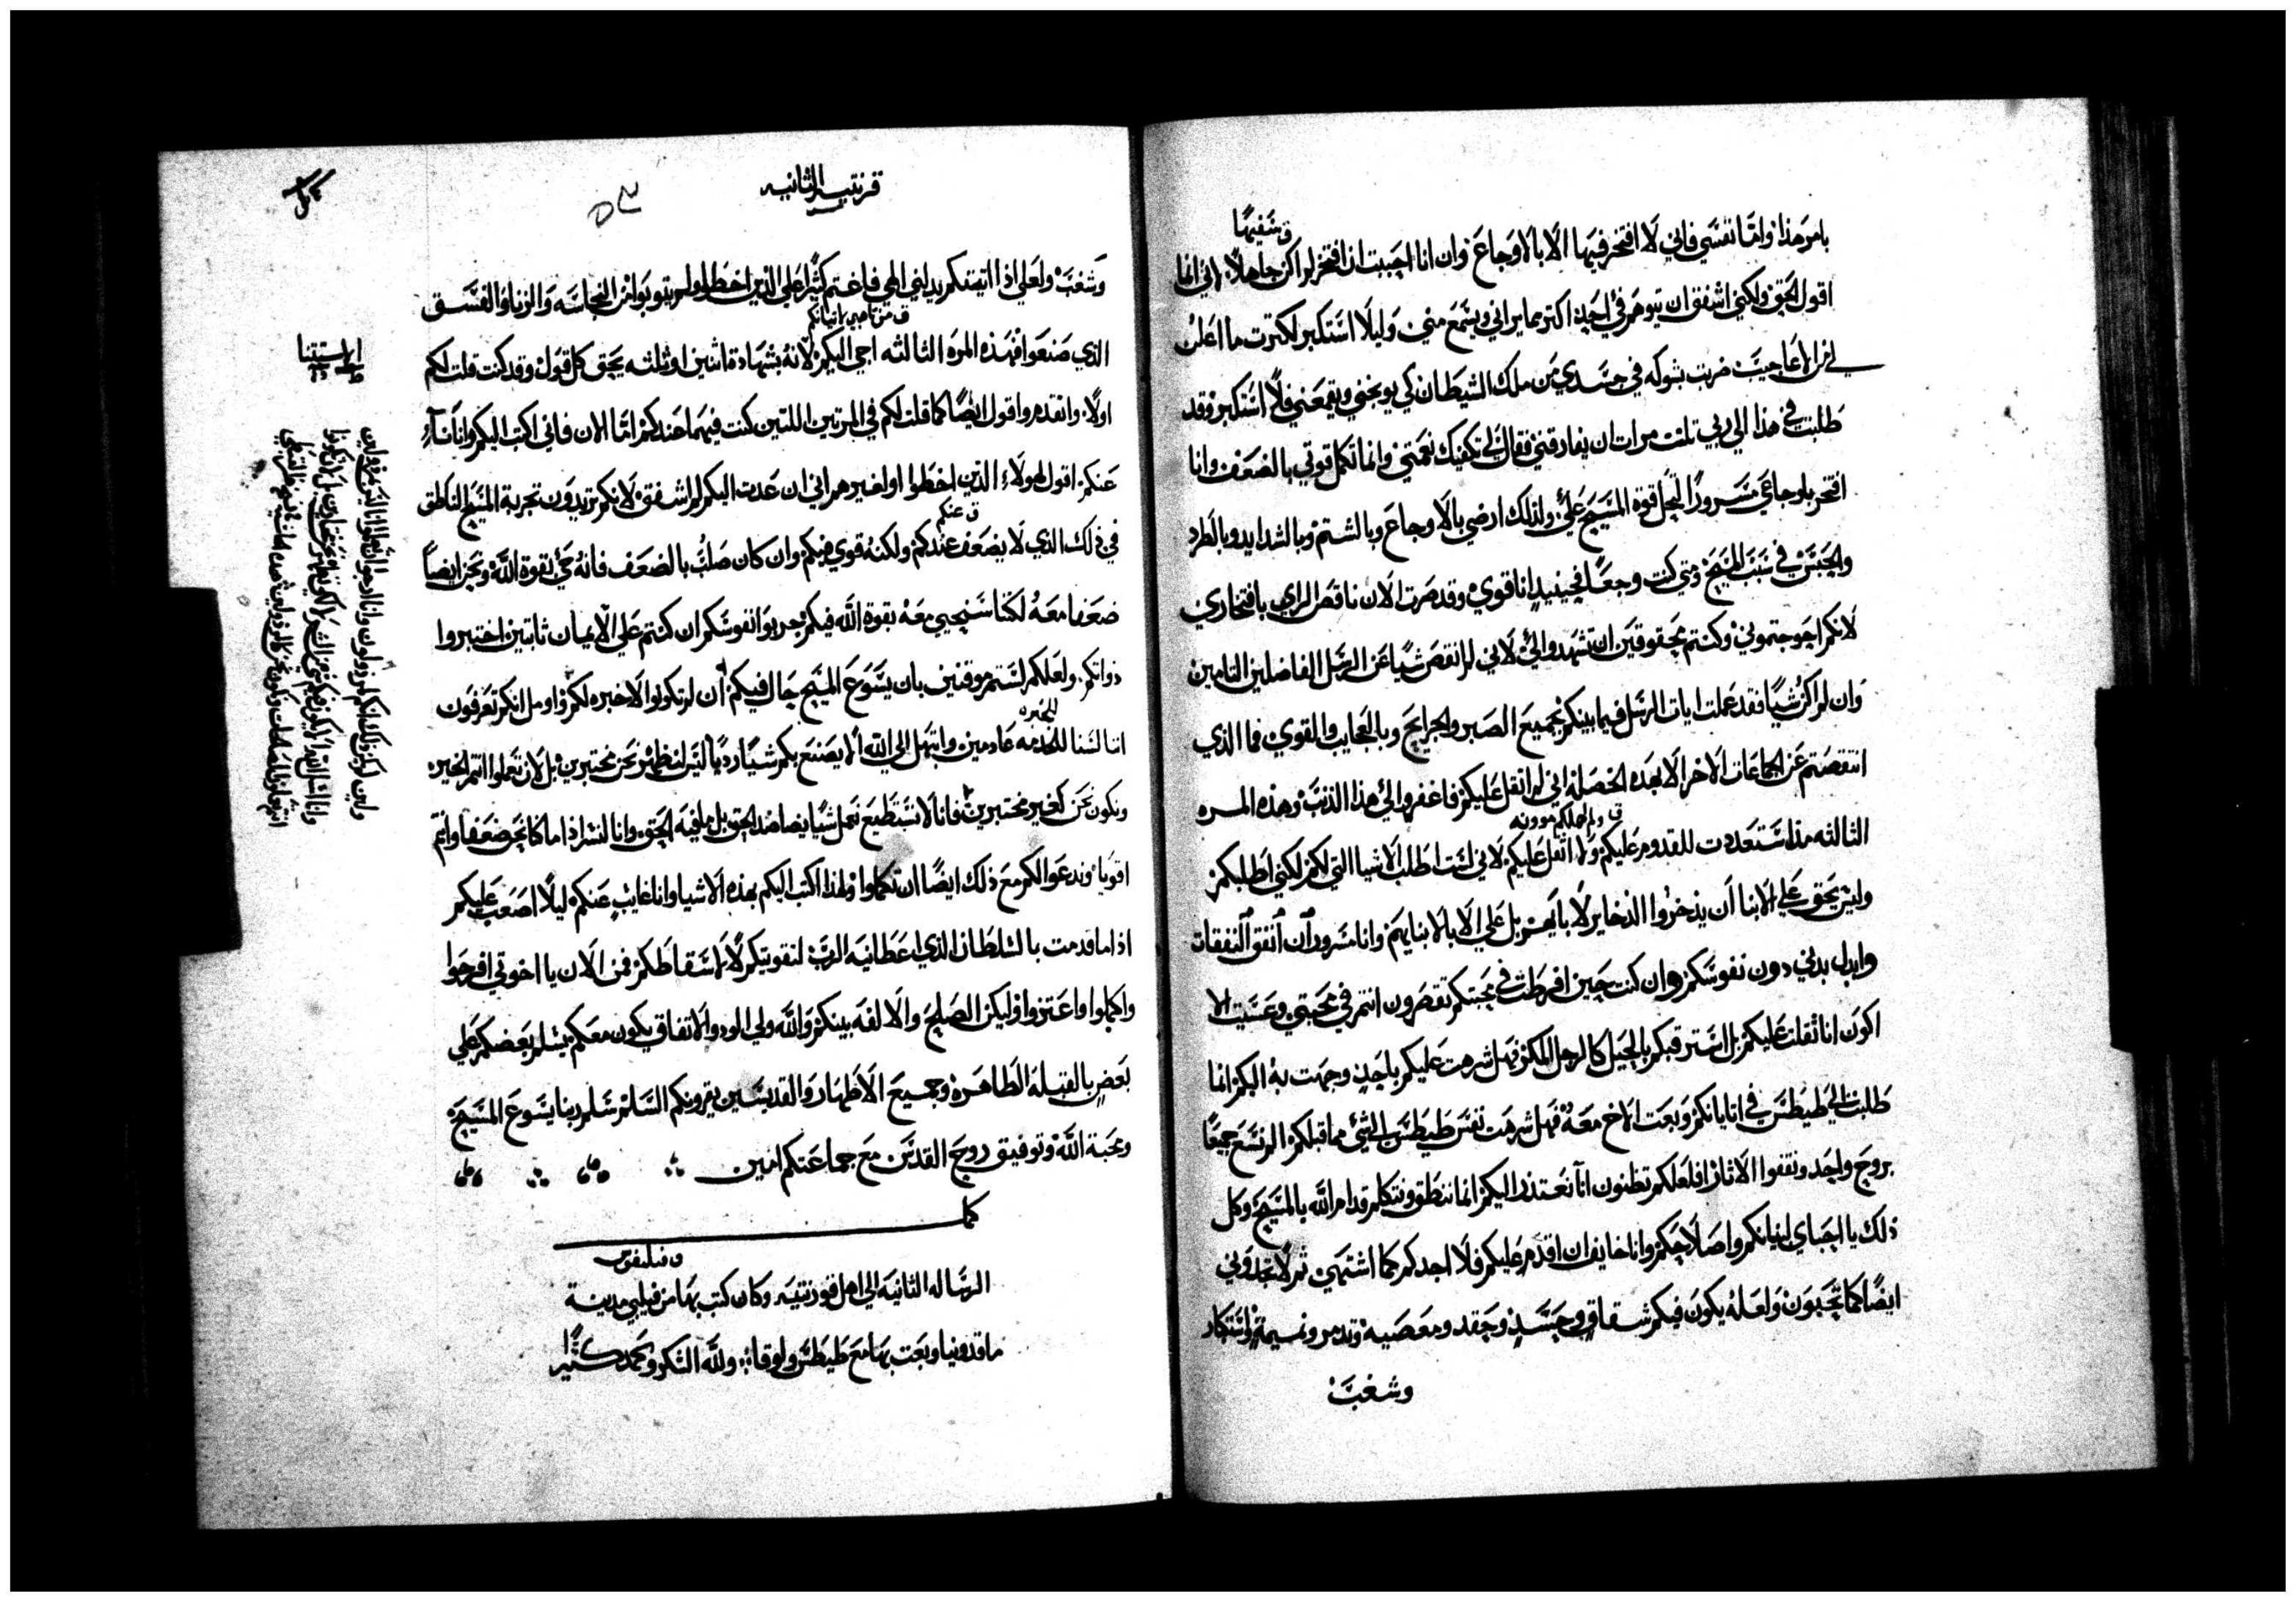 ق سفيهًا
بامر هذا واما نفسي فاني لا افتخر فيها الا بالاوجاع وان انا احببت ان افتخر لم اكن جاهلاً لاني انما
اقول الحق ولكني اشفق ان يتوهم في احد اكثر مما يراني ويسمع مني وليلا استكبر لكثرت ما اعلن
لي من الاعاجيب ضربت بشوكه في جسدي من ملك الشيطان كي يوبخني ويقمعني فلا استكبر وقد
طلبت في هذا الي ربي ثلث مرات ان يفارقني فقال لي تكفيك نعمتي وانما تكمل قوتي بالضعف وانا
افتخر باوجاعي مسرورًا لتحل قوة المسيح علي ولذلك ارضي بالاوجاع وبالشتم وبالشدايد وبالطرد
والحبس في سبب المسيح ومتي كنت وجعًا فحينيد انا قوي وقد صرت الان ناقص الراي بافتخاري
لانكم احوجتموني وكنتم محقوقين ان تشهدوا لي لاني لم انقص شيًا عن الرسل الفاضلين التامين
وان لم اكن شيًا فقد عملت ايات الرسل فيما بينكم بجميع الصبر والجرايح وبالعجايب والقوي فما الذي
انتقصتم عن الجماعات الاخر الا بهذه الخصله اني لم اثقل عليكم فاغفروا لي هذا الذنب وهذه المره
ق ولم احملكم موونه
الثالثه مذ استعددت للقدوم عليكم ولم اثقل عليكم لاني لست اطلب الاشيا التي لكم لكني اطلبكم
وليس يحق علي الابنا ان يذخروا الذخاير لابايهم بل علي الابا لابنايهم وانا مسرور ان انفق النفقات
وابدل بدني دون نفوسكم وان كنت حين افرطت في محبتكم تقصرون انتم في محبتي وعسيت الا
اكون انا ثقلت عليكم بل استرقبكم بالحيل كالرجل المكر فهل شرهت عليكم باحد وجهت به اليكم انما
طلبت الي طيطس في اتيانكم وبعت الاخ معه فهل شرهت نفس طيطس الي شي مما قبلكم الم نسع جميعًا
بروح واحد ونقفوا الاثار افلعلكم تظنون انا نعتذر اليكم انما ننطق ونتكلم قدام الله بالمسيح وكل
ذلك يا احباي لبنيانكم واصلاحكم وانا خايف ان اقدم عليكم فلا اجدكم كما اشتهي ثم لا تجدوني
ايضًا كما تحبون ولعله يكون فيكم شقاق وحسد وحقد ومعصيه وتدمر ونميمة واستكبار
وشغب
قرنتيه الثانيه
وشغب ولعلي اذا اتيتكم يدلني الهي فاغتم كثيرًا علي الذين اخطوا ولم يتوبوا من النجاسه والزنا والفسق
الذي صنعوا فهذه المره الثالثه اجي اليكم لانه بشهادة اثنين او ثلثه يحق كل قول وقد كنت قلت لكم
اولا واتقدم واقول ايضًا كما قلت لكم في المرتين اللتين كنت فيهما عندكم اما الان فاني اكتب اليكم وانا ناء
عنكم اقول لهولاء الذين اخطوا او لغيرهم اني ان عدت اليكم لم اشفق لانكم تريدون تجربة المسيح الناطق
ق عنكم
في ذلك الذي لا يضعف عندكم ولكنه قوي فيكم وان كان صلب بالضعف فانه حي بقوة الله ونحن ايضًا
ضعفا معه لكنا سنحيي معه بقوة الله فيكم جربوا نفوسكم ان كنتم علي الايمان ثابتين اختبروا
ذواتكم ولعلكم لستم موقنين بان يسوع المسيح حال فيكم ان لم تكونوا لا خبره لكم واومل انكم تعرفون
للخبره
انا لسنا للخدمه عادمين وابتهل الي الله الا يصنع بكم شيًا رديًا ليس لنظهر نحن مختبرين بل لان تعملوا انتم الخيره
ونكون نحن كغير مختبرين فانا لا نستطيع نعمل شيًا يضاضد الحق بل ما فيه الحق وانا لنسر اذا ما كنا نحن ضعفا وانتم
اقويا وندعوا لكم مع ذلك ايضًا ان تكملوا ولهذا اكتب اليكم بهذه الاشيا وانا غايب عنكم ليلا اصعب عليكم
اذا ما قدمت بالسلطان الذي اعطانيه الرب لتقويتكم لا لاسقاطكم فمن الان يا اخوتي افرحوا
واكملوا واعتزوا وليكن الصلح والالفه بينكم والله ولي الود والاتفاق يكون معكم يسلم بعضكم علي
بعض بالقبلة الطاهره وجميع الاطهار والقديسين يقرونكم السلم سلم ربنا يسوع المسيح
ومحبة الله وتوفيق روح القدس مع جماعتكم امين
كملت
الرساله الثانيه الي اهل قورنتيه وكان كتب بها من فيلبي مدينة
ماقدونيا وبعت بها مع طيطس ولوقا ولله الشكر والحمد كثيرًا